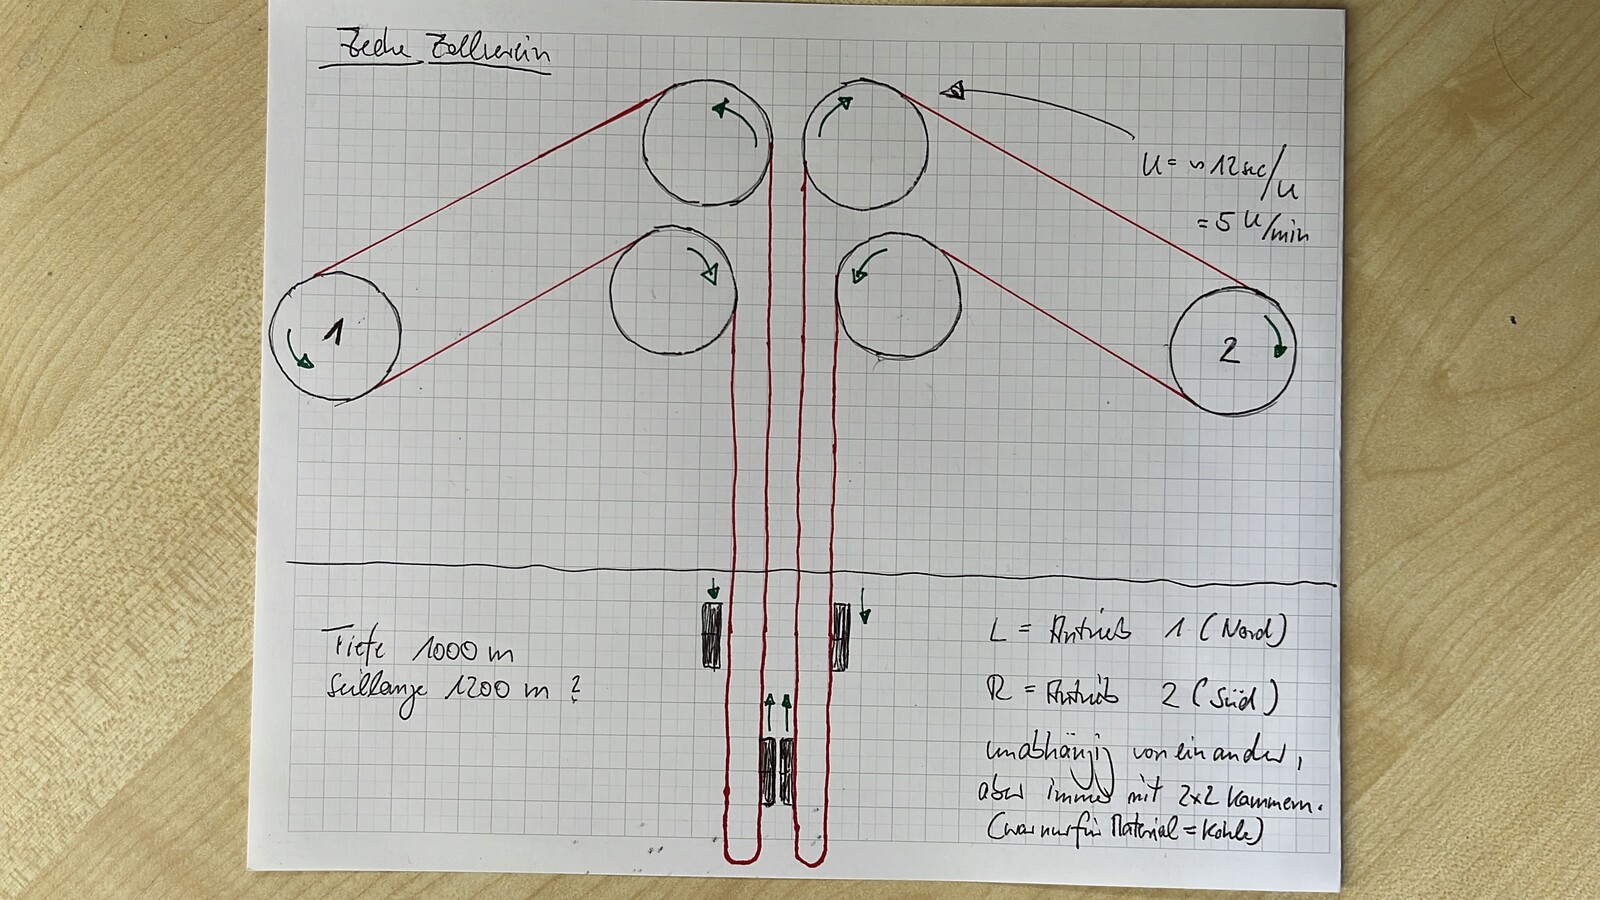 Zeche Zollverein
U = ~ 12 sec/U
= 5 U/min
1
2
Tiefe 1000 m
Seillänge 1200 m ?
L = Antrieb 1 (Nord)
R = Antrieb 2 (Süd)
unabhängig voneinander,
aber immer mit 2x2 Kammern.
(war nur für Material = Kohle)